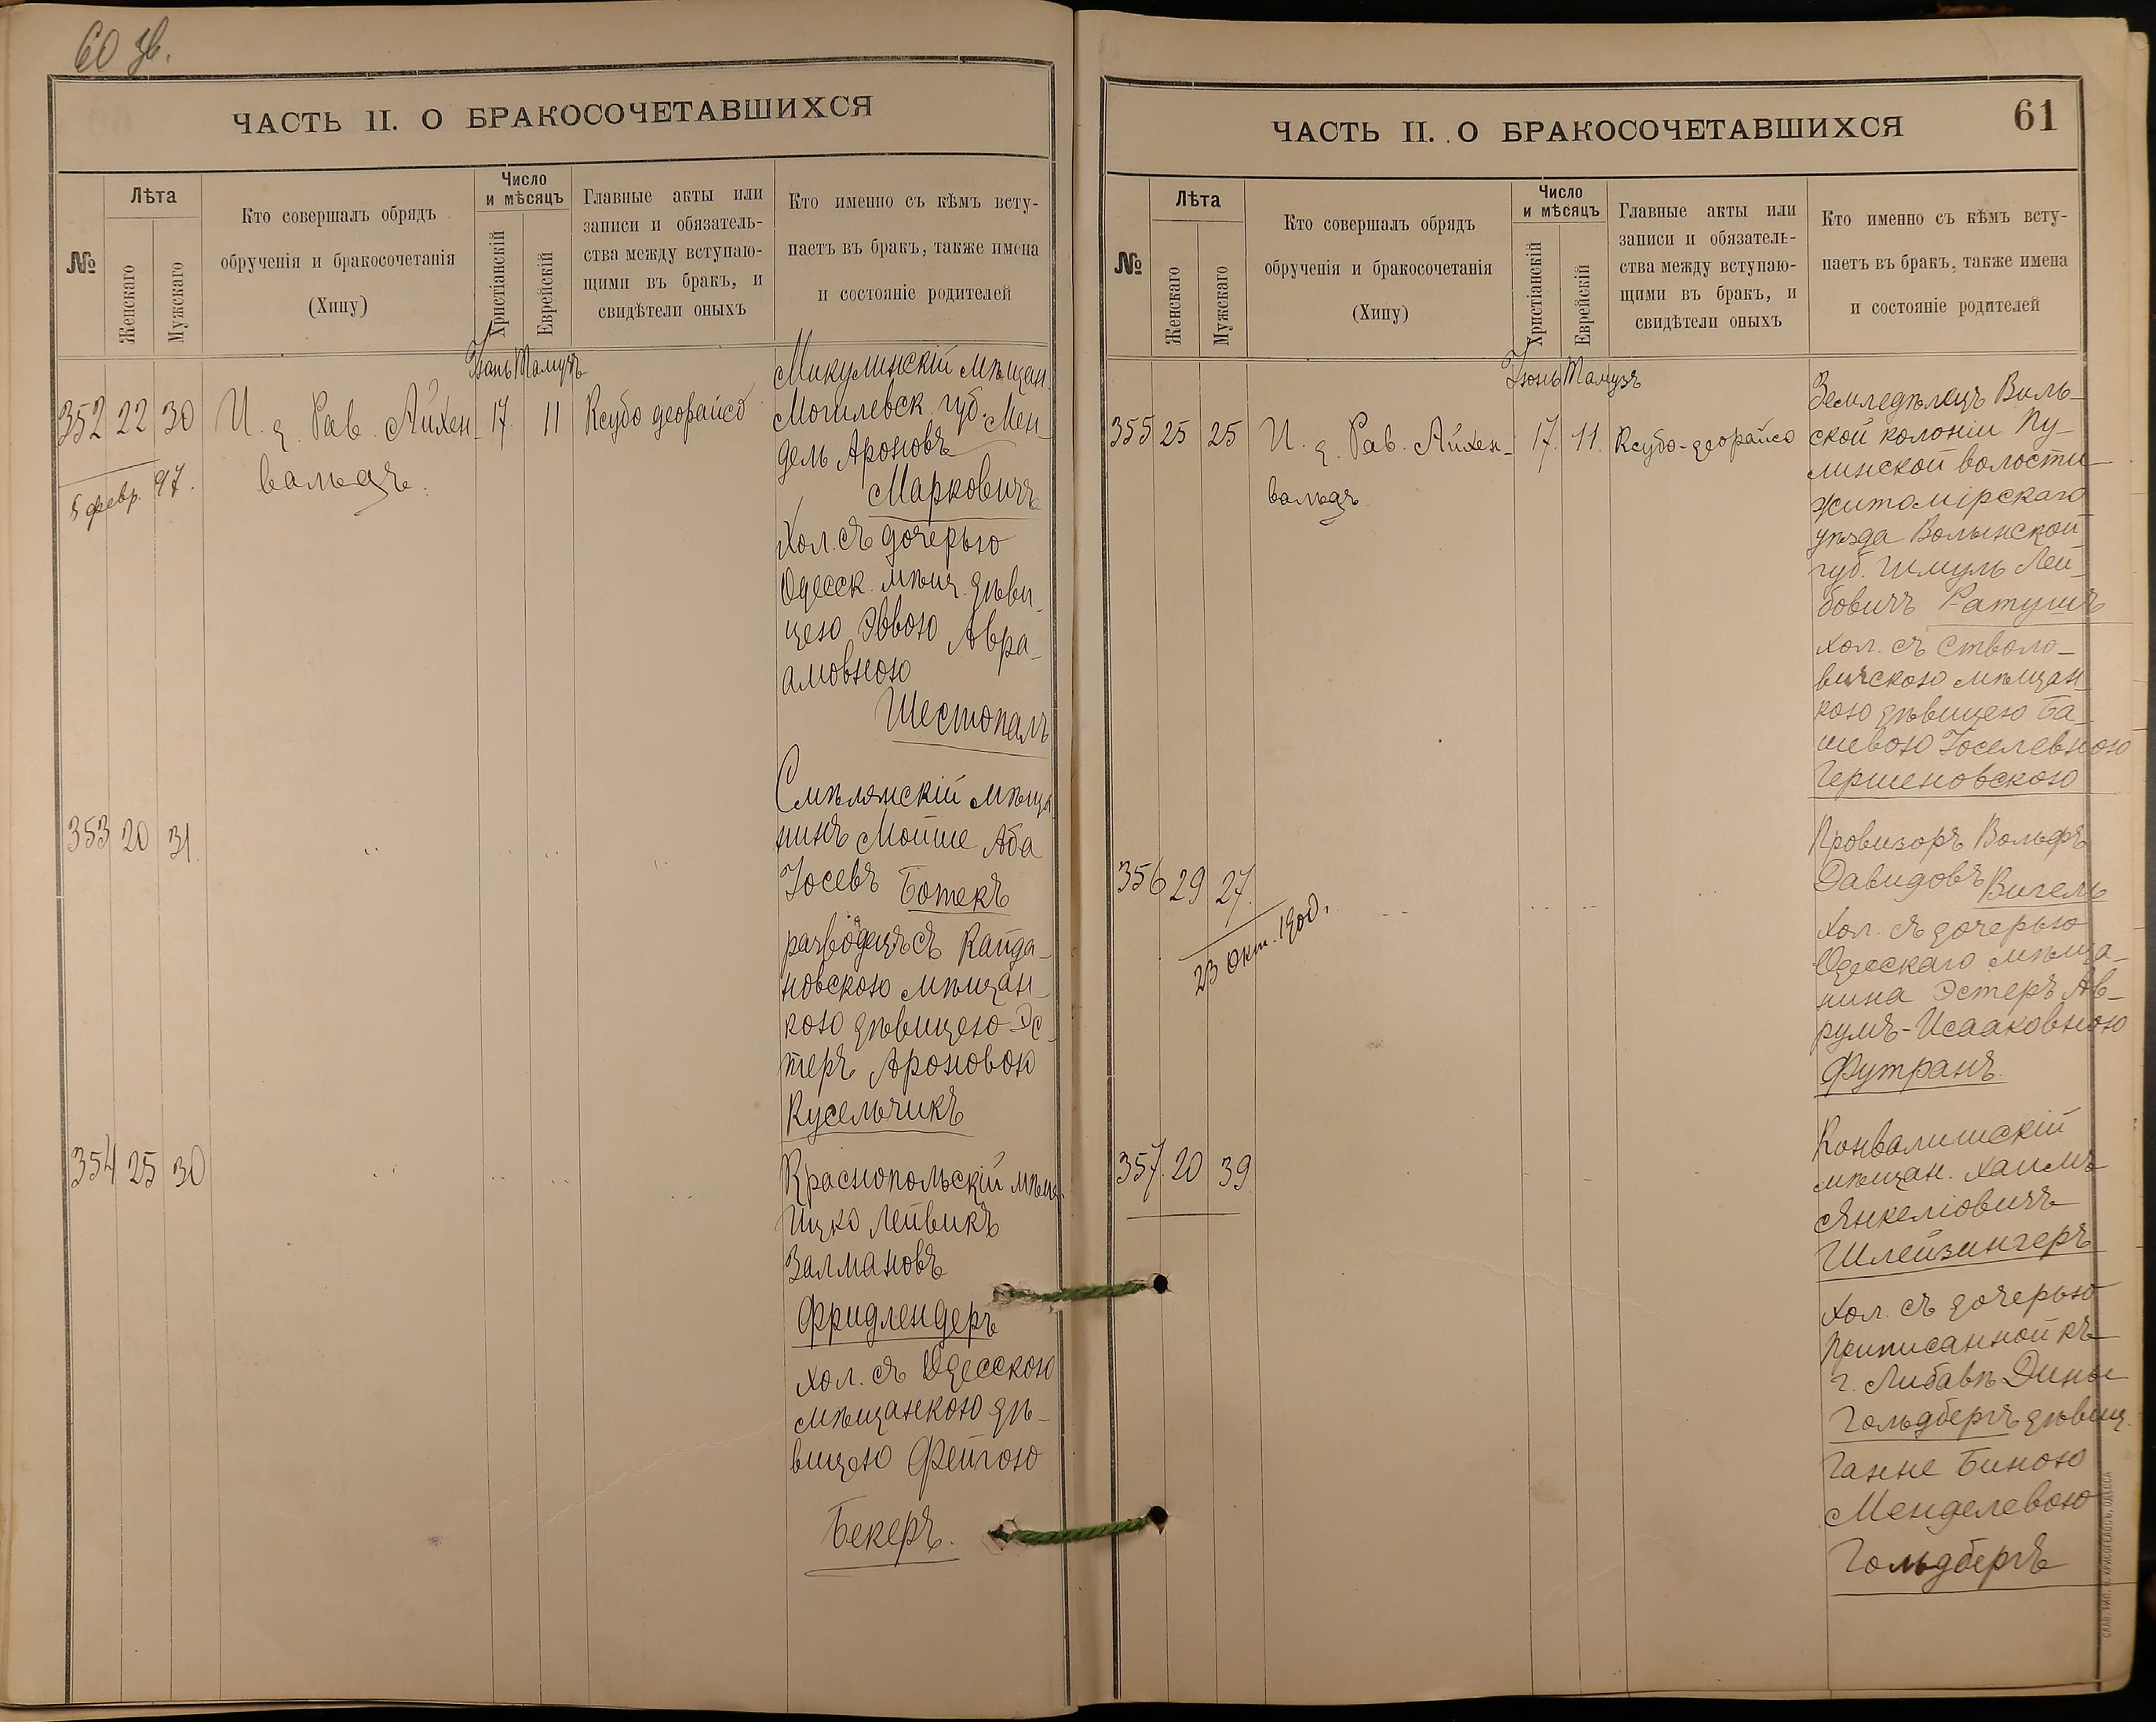 60 зв.
ЧАСТЬ II. О БРАКОСОЧЕТАВШИХСЯ
№
Лѣта
Женскаго
Мужскаго
Кто совершалъ обрядъ
обрученія и бракосочетанія
(Хипу)
Число
и мѣсяцъ
Христіанскій
Еврейскій
Главные акты или
записи и обязатель-
ства между вступаю-
щими въ бракъ, и
свидѣтели оныхъ
Кто именно съ кѣмъ всту-
паетъ въ бракъ, также имена
и состояніе родителей
Іюнь Тамузъ
352 22 30 И. д. Рав. Айхен- 17. 11 Ксубо деорайсо
вальдъ.
5 февр. 97.
Микулинскій мѣщан.
Могилевск. губ. Мен-
дель Ароновъ
Марковичъ
Хол. съ дочерью
Одесск. мѣщ. дѣви-
цею Эввою Авра-
амовною
Шестопалъ
353 20 31.
Смѣлянскій мѣща-
нинъ Мойше Аба
Іосевъ Ботекъ
разводецъ съ Кайда-
новскою мѣщан-
кою дѣвицею Эс-
теръ Ароновою
Кусельчикъ
354 25 30
Краснопольскій мѣщ.
Ицко Лейвикъ
Залмановъ
Фридлендеръ
хол. съ Одесскою
мѣщанкою дѣ-
вицею Фейгою
Бекеръ.
ЧАСТЬ II. О БРАКОСОЧЕТАВШИХСЯ
61
№
Лѣта
Женскаго
Мужскаго
Кто совершалъ обрядъ
обрученія и бракосочетанія
(Хипу)
Число
и мѣсяцъ
Христіанскій
Еврейскій
Главные акты или
записи и обязатель-
ства между вступаю-
щими въ бракъ, и
свидѣтели оныхъ
Кто именно съ кѣмъ всту-
паетъ въ бракъ, также имена
и состояніе родителей
Іюнь Тамузъ
355 25 25 И. д. Рав. Айхен- 17. 11. Ксубо-деорайсо
вальдъ.
Земледѣлецъ Виль-
ской колоніи Пу-
линской волости
Житомірскаго
уѣзда Волынской
губ. Шмуль Лей-
бовичъ Ратушъ
хол. съ Стволо-
вичскою мѣщан-
кою дѣвицею Ба-
шевою Іоселевною
Гершеновскою
356 29 27.
23 окт. 1900.
Провизоръ Вольфъ
Давидовъ Вигель
хол. съ дочерью
Одесскаго мѣща-
нина Эстеръ Ав-
румъ-Исааковною
Футранъ.
357. 20 39
Конвалишскій
мѣщан. Хаимъ
Янкеліовичъ
Шлейзингеръ
хол. съ дочерью
приписанной къ
г. Либавѣ Дины
Гольдбергъ дѣвиц.
Ганне Биною
Менделевою
Гольдбергъ